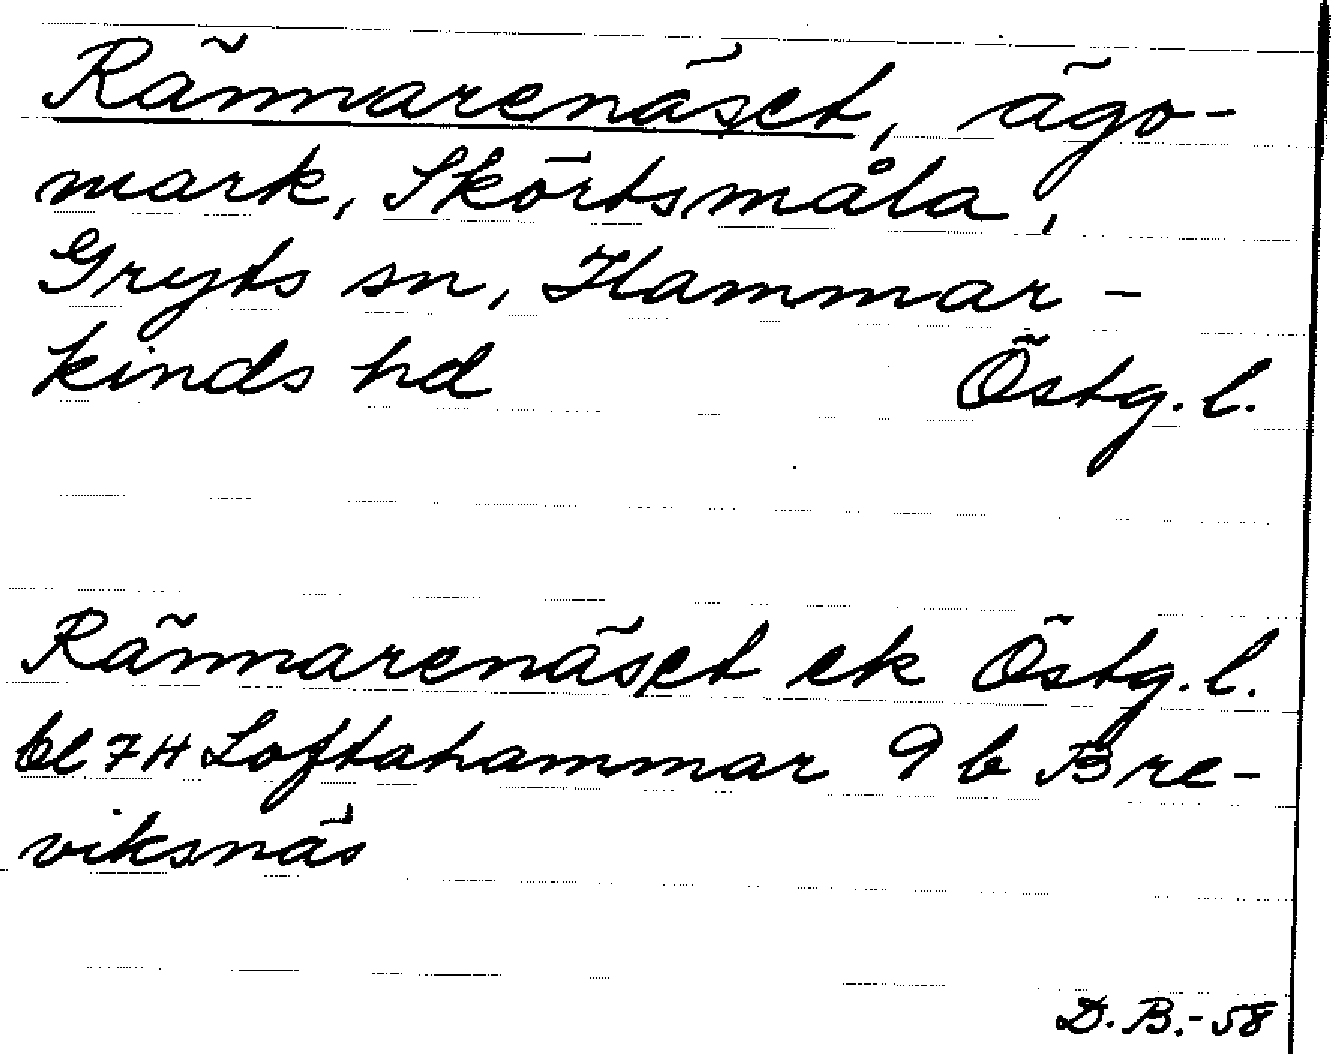 Rännarenäset, ägo-
mark, Skörtsmåla,
Gryts sn, Hammar-
kinds hd Östg. l.
Rännarenäset ek Östg. l.
bl 7H Loftahammar 9b Bre-
viksnäs
D. B.-58